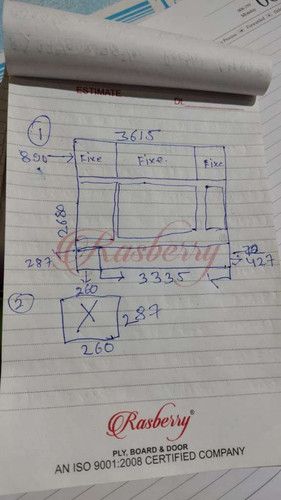 ESTIMATE
Dt.
1
3615
890
Fixe Fixe. Fixe
2680
Rasberry
287
70
427
260
3335
2
X
287
260
Rasberry®
PLY, BOARD & DOOR
AN ISO 9001:2008 CERTIFIED COMPANY